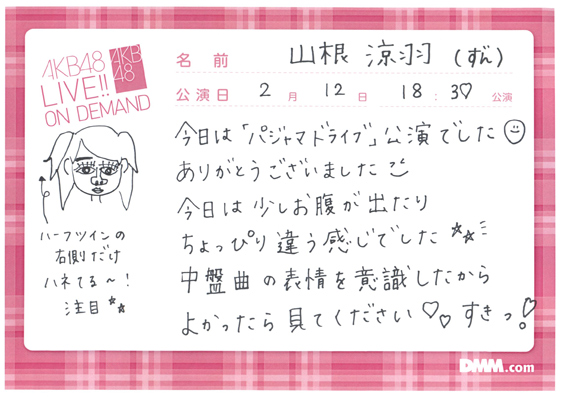 AKB48
LIVE!!
ON DEMAND
AKB
48
名前 山根 涼羽 (ずん)
公演日 2月 12日 18:30 公演
今日は「パジャマドライブ」公演でした
ありがとうございました
今日は少しお腹が出たり
ちょっぴり違う感じでした
中盤曲の表情を意識したから
よかったら見てください♡♡ すきっ!
ハーフツインの
右側だけ
ハネてる〜!
注目
DMM.com